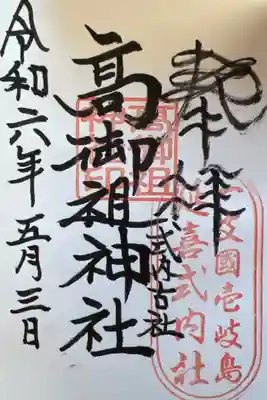 奉拝
式内古社
高御祖神社
令和六年五月三日
壱岐島
延喜式内社